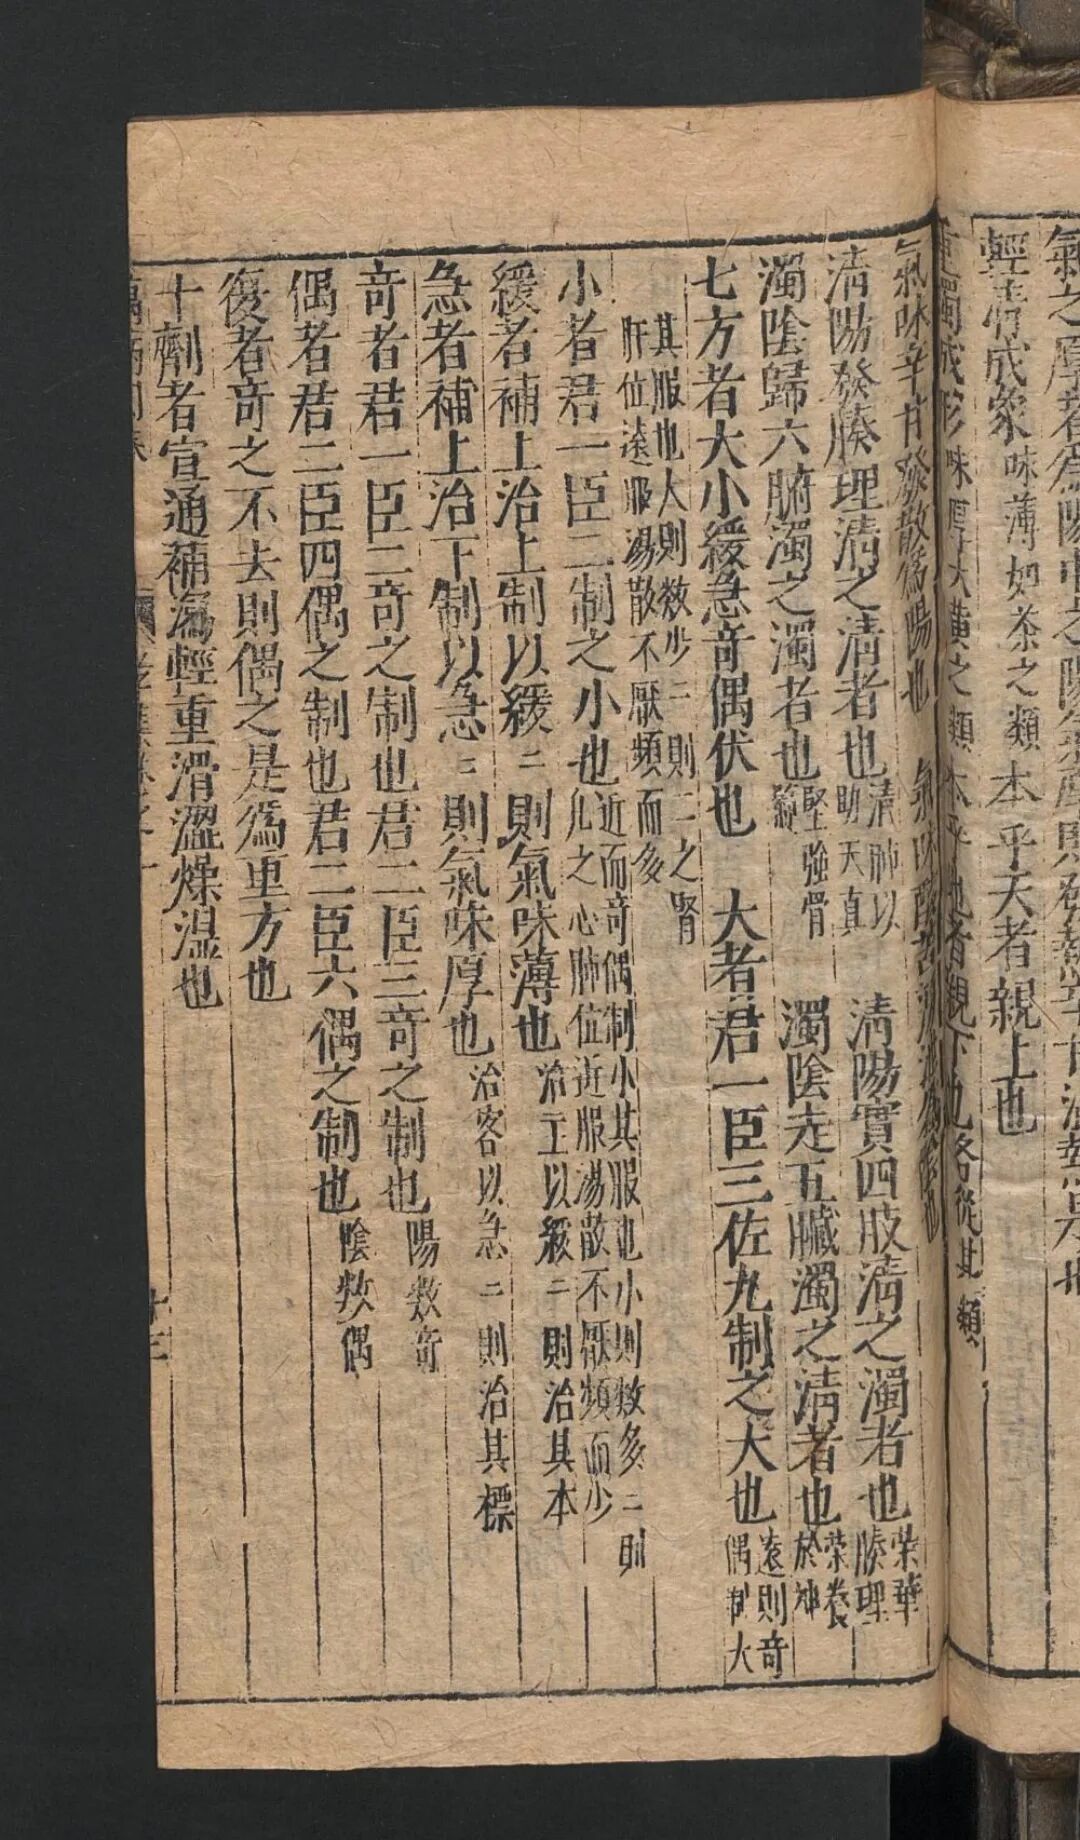 氣之厚者爲陽中之陽氣厚則發熱辛甘温熱是也
輕清成象味薄如茶之類本乎天者親上也
重濁成形味厚大黄之類本乎地者親下也各從其類
氣味辛甘發散爲陽也 氣味酸苦涌泄爲陰也
清陽發腠理清之清者也清肺以助天真 清陽實四肢清之濁者也荣華腠理
濁陰歸六腑濁之濁者也堅強骨髓 濁陰走五臟濁之清者也荣養於神
七方者大小緩急奇偶伏也 大者君一臣三佐九制之大也遠則奇偶制大
其服也大則数少二則二之腎肝位遠服湯散不厭頻而多
小者君一臣二制之小也近而奇偶制小其服也小則数多二則九之心肺位近服湯散不厭頻而少
緩者補上治上制以緩二則氣味薄也治主以緩二則治其本
急者補上治下制以急二則氣味厚也治客以急二則治其標
奇者君一臣二奇之制也君二臣三奇之制也陽数奇
偶者君二臣四偶之制也君二臣六偶之制也陰数偶
復者奇之不去則偶之是爲重方也
十劑者宣通補瀉輕重滑澀燥温也